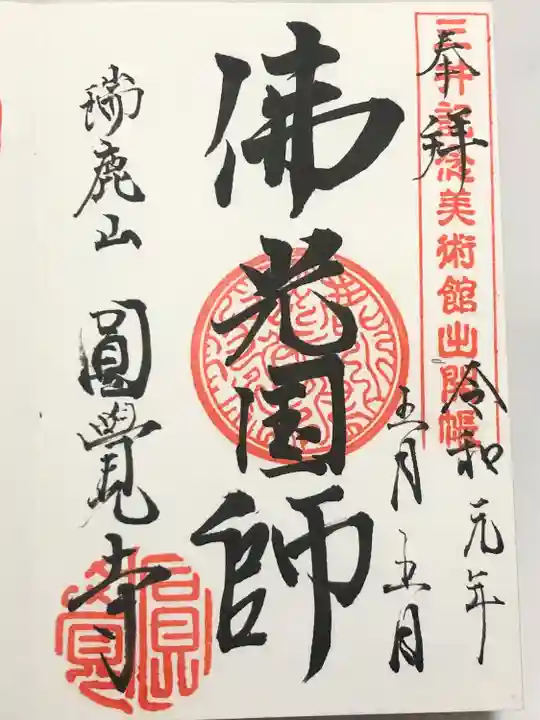 三井記念美術館出開帳
奉拝
令和元年
五月五日
佛光国師
瑞鹿山 圓覺寺
圓覺